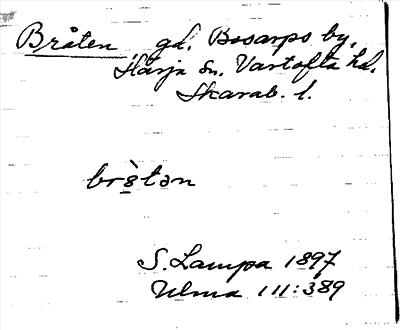 Bråten, gd. Bosarps by,
Härja sn. Vartofta hd.
Skarab. l.
brò̱tən
S. Lampa 1897
Ulma 111:389